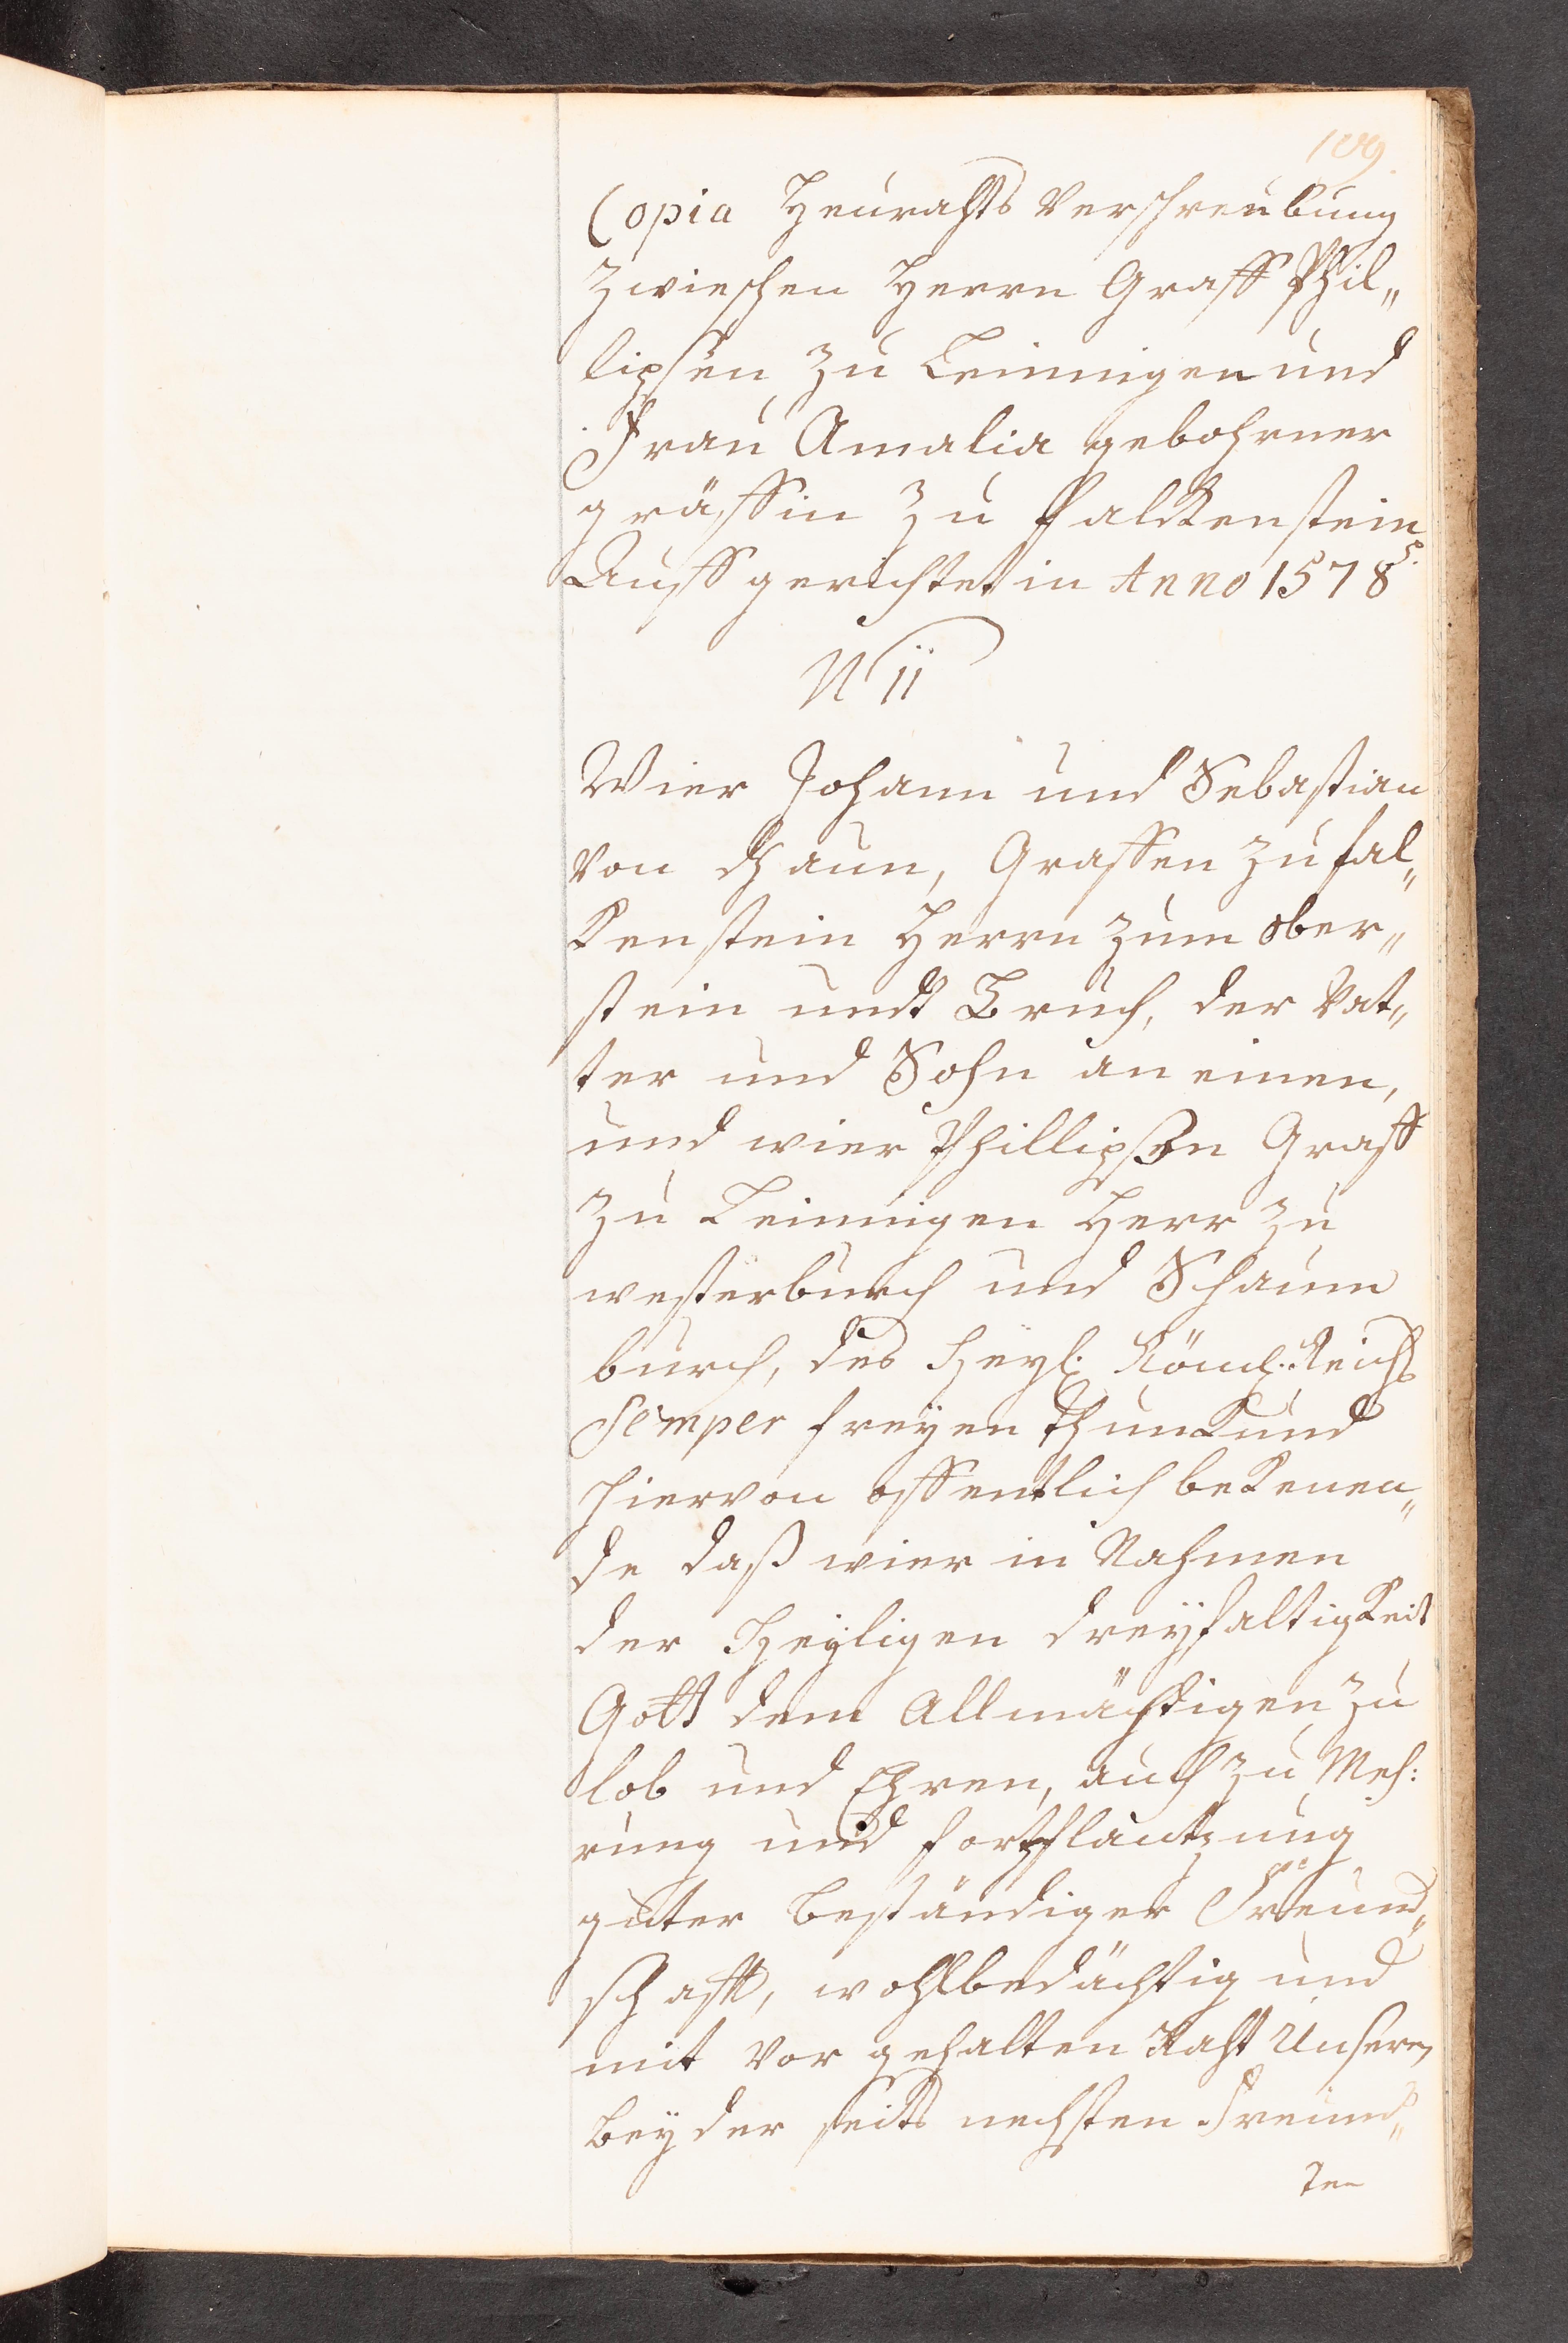 109.
Copia Heurahts Verschreibung
zwieschen Herrn Graff Phil„
lipsen zu Leiningen und
Frau Amalia gebohrner
gräffin zu Falckenstein
Auffgerichtet in Anno 1578
N 11
Wier Johann und Sebastian
von Dhaun, Graffen zu fal„
Kenstein Herrn zum ober„
stein undt Bruch, der Vat„
ter und Sohn an einen,
und wier Phillipsen Graff
zu Leiningen Herr zu
westerburch und Schaum
burch, des Heyl. Röml. Reichs
Semper freyen thun Kund
hiervon offentlich beKenen„
de daß wier in Nahmen
der Heyligen dreyfaltigKeit
Gott dem Allmächtigen zu
lob und Ehren, auch zu Meh:
rung und fortpflantzung
guter beständiger Freund„
schafft, wohlbedächtig und
mit vor gehalten Raht Unseren
beyder seits nechsten Freund„
ten